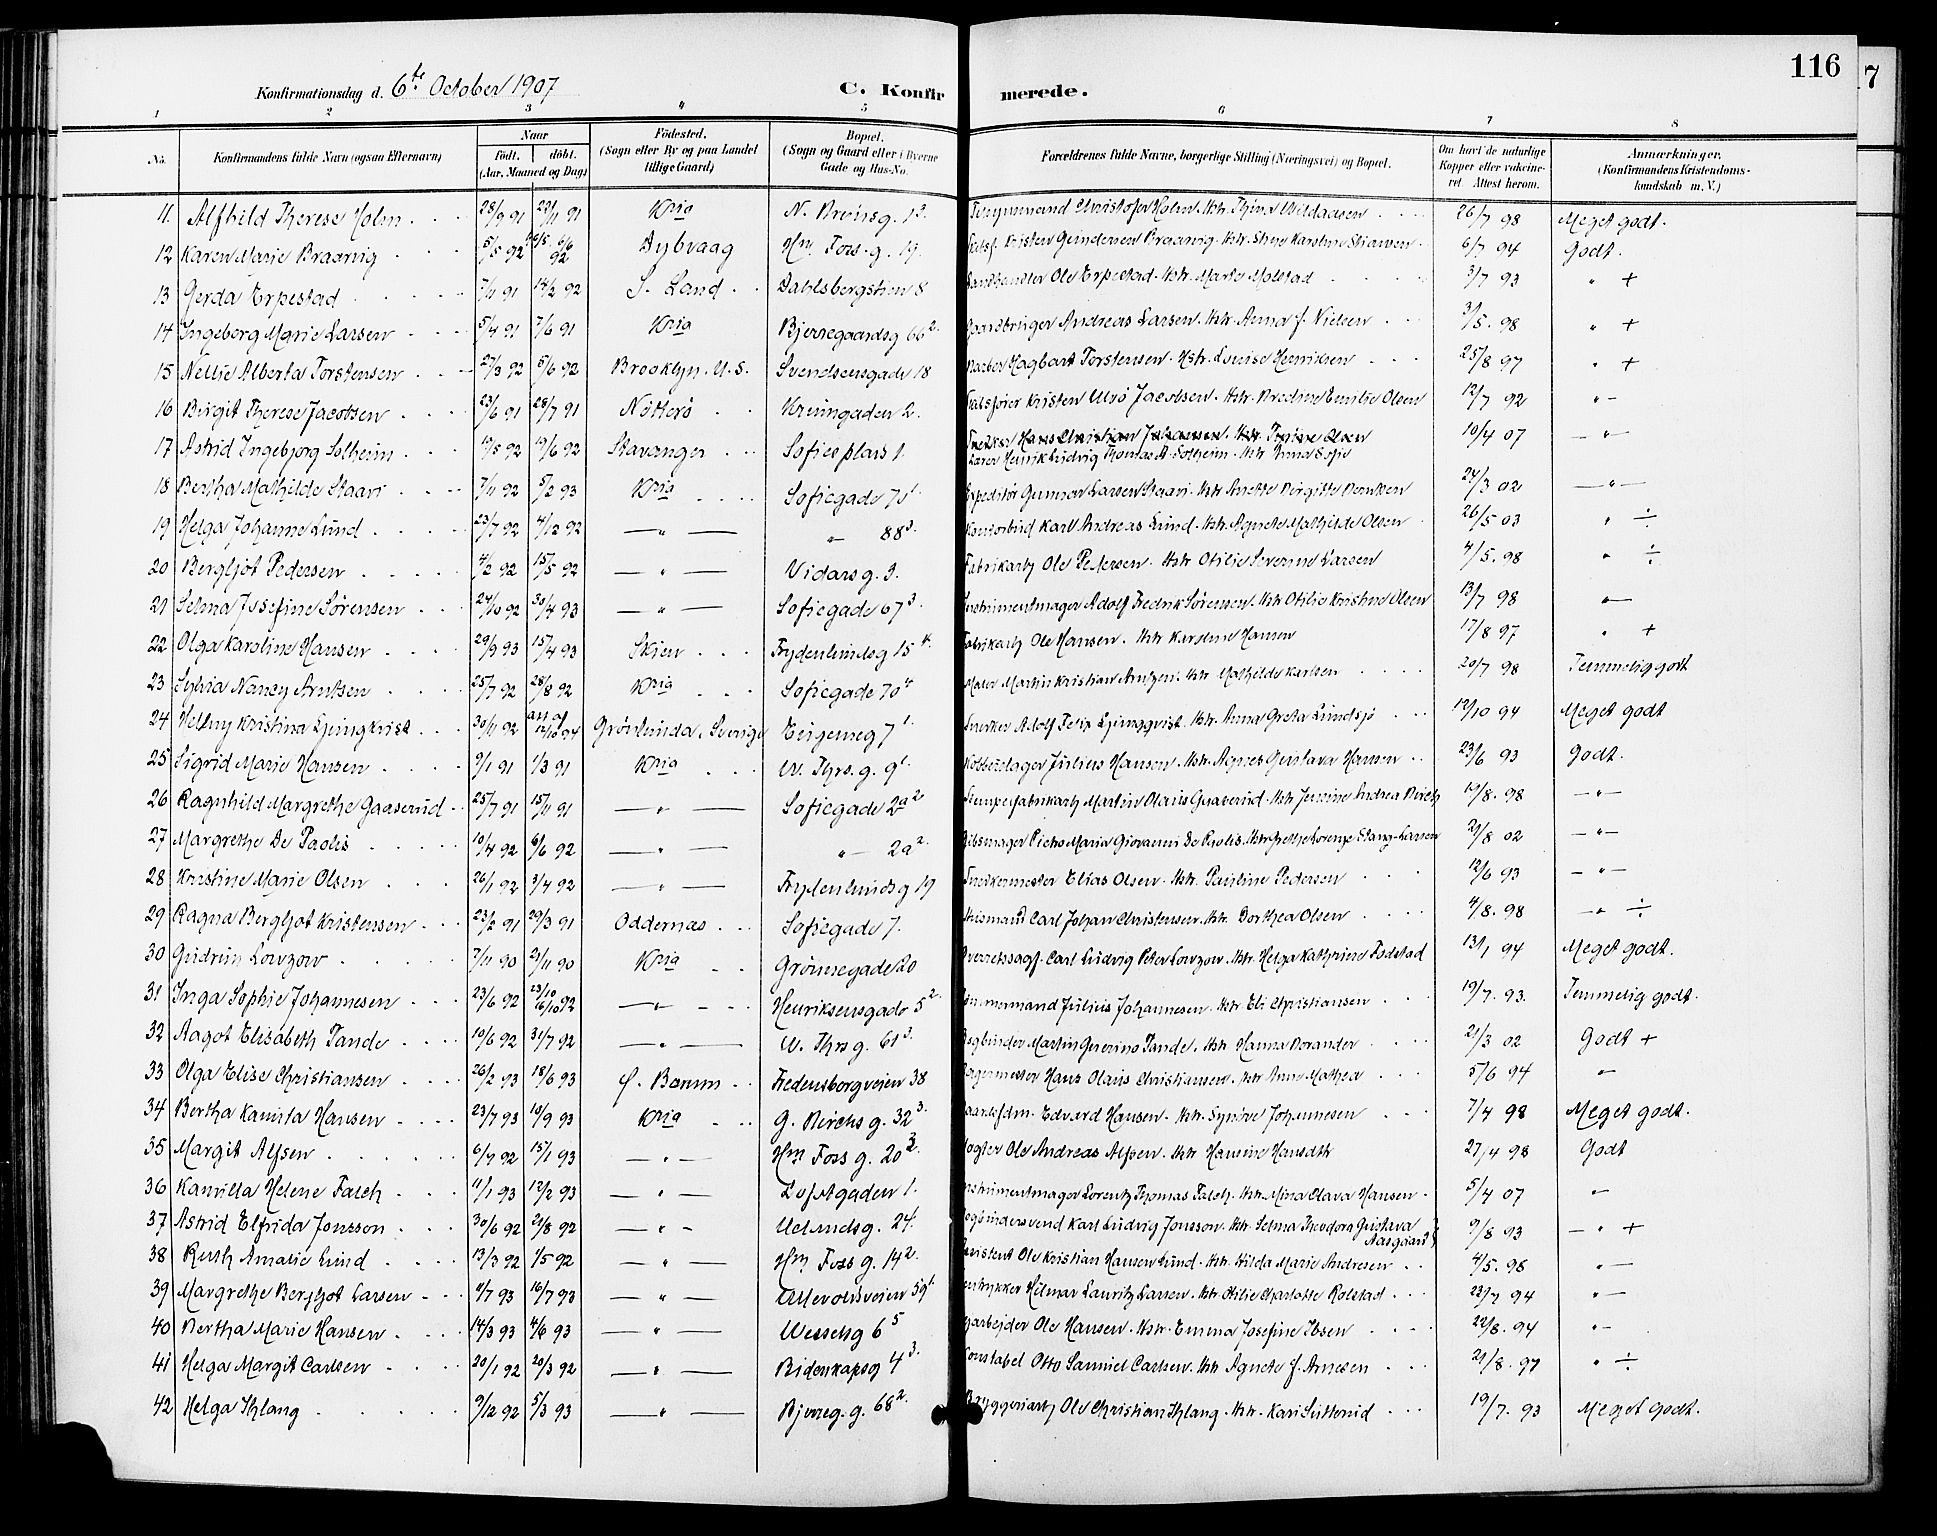 116
7
Konfirmationsdag d. 6te October 1907
C. Konfirmerede.
1 2 3 4 5 6 7 8
No. Konfirmandens fulde Navn (ogsaa Efternavn) Naar født. døbt. (Aar, Maaned og Dag) Fødested. (Sogn eller By og paa Landet tillige Gaard) Bopæl. (Sogn og Gaard eller i Byerne Gade og Hus-No. Forældrenes fulde Navne, borgerlige Stilling (Næringsvei) og Bopæl. Om havt de naturlige Kopper eller vakcineret. Attest herom. Anmærkninger. (Konfirmandens Kristendomskundskab m. V.)
11. Alfhild Therese Holm 28/9 91 22/11 91 Kria 26/7 98 Meget godt.
12 Karen Marie Braarvig 5/5 92 6/6 92 Dybvaag Hm. Foss. g. 19 6/7 94 Godt.
13 Gerda Erpestad 7/11 91 14/2 92 S. Land Dahlsbergstien 8 Landhandler Ole Erpestad. Hstr. Marte Molstad 3/7 93 " +
14 Ingeborg Marie Larsen 5/4 91 7/6 91 Kria Bjerregaardsg 66 2. Gaardbruger Andreas Larsen. Hstr. Anna J. Nielsen 3/5. 98 " +
15 Nellie Alberta Torstensen 27/3 92 5/6 92 Brooklyn. U. S. Svendsensgade 18 Barber Hagbart Torstensen. Hstr. Louise Henriksen 25/8 97 " +
16 Birgit Therese Jacobsen 23/6 91 28/7 91 Nøtterø Kringaden 2. Kristen Ulrø Jacobsen. Hstr. Bredine Emilie Olsen 12/7 92 " -
17 Astrid Ingebjorg Solheim 19/5 92 19/6 92 Stavanger Sofiesplass 1. Snekker Hans Christian Johansen. Hstr. Trine Olsen 10/4 07 — " —
Lærer Henrik Ludvig Thomas A. Solheim. Hstr Anna
18 Bertha Mathilde Staari 7/11 92 5/2 93 Kria Sofiegade 70 1. Expeditør Gunnar Larsen Staari. Hstr Anette Birgitte Berntsen 24/3 02 — " —
19 Helga Johanne Lund 23/7 92 4/12 92 — " — " 88 3. Kontorbud Karl Andreas Lund. Hstr. Agnete Mathilde Olsen 26/5 03 " ÷
20 Bergljot Pedersen 4/2 92 15/5 92 — " — Vidars g. 3. Fabrikarb Ole Pedersen. Hstr Otilie Severine Larsen 4/5. 98 " ÷
21 Selma Josefine Sørensen 24/10 92 30/4 93 — " — Sofiegade 67 3. Instrumentmager Adolf Fredrik Sørensen. Hstr Otilie Kristine Olsen 13/7 98 " —
22 Olga Karoline Hansen 29/9 93 15/4 93 Skien Frydenlundsg 15 4. Fabrikarb Ole Hansen. Hstr Karoline Hansen 17/8 97 " +
23 Sylvia Nancy Arntsen 25/7 92 28/8 92 Kria Sofiegade 70 4 Maler Martin Kristian Arntzen. Hstr Mathilde Karlsen 20/7 98 Temmelig godt
24 Helluy Kristina Ljungkvist 30/11 92 att af 12/10 94 Grönlunda, Sverige Eugeniesg 7 1. Snekker Adolf Felix Ljungqvist. Hstr. Anna Greta Lundsjö 12/10 94 Meget godt
25 Sigrid Marie Hansen 9/1 91 1/3 91 Kria W. Thrs. g. 9 1. Kobberslager Julius Hansen. Hstr. Agnes Gustava Hansen 23/6 93 Godt.
26 Ragnhild Margrethe Gaaserud 25/7 91 15/11 91 — " — Sofiegade 2a 2 Stemperfabrikarb Martin Olaus Gaaserud. Hstr Jensine Andrea Birch 19/8. 98 — " —
27 Margrethe De Paolis 10/4 92 6/6 92 — " — " — 2a 2. Gibsmager Pietro Maria Giovanni De Paolis. Hstr Grethe Lorenze Stang-Larsen 21/8 02 — " —
28 Kristine Marie Olsen 26/1 92 3/4 92 — " — Frydenlundsg 19 Snekkermester Elias Olsen. Hstr. Pauline Pedersen 12/6 93 — " —
29 Ragna Bergljot Kristensen 23/2 91 29/3 91 Oddernæs Sofiegade 7. Carl Johan Christensen. Hstr. Dorthea Olsen 4/8. 98 — " ÷
30 Gudrun Lowzow 7/11 90 21/11 90 Kria Grønnegade 20 Overretssagf. Carl Ludvig Peter Lowzow. Hstr. Helga Kathrine Fodstad 13/1 94 Meget godt.
31 Inga Sophie Johannesen 23/6 92 23/10 16/10 92 — " — Henriksensgade 5 2. Tømmermand Julius Johannesen. Hstr. Eli Christiansen 19/7. 93. Temmelig godt.
32 Aagot Elisabeth Tande 10/6 92 31/7 92 — " — W. Thrs g. 61 3. Bogbinder Martin Severino Tande. Hstr Hanna Borander 21/3 02 Godt +
33 Olga Elise Christiansen 26/2 93 18/6 93 Ø. Bærum Fredensborgveien 38 Bagermester Hans Olaus Christiansen. Hstr Anne Mathea 5/6 94 " —
34 Bertha Kamilla Hansen 23/7 93 10/9 93 Kria G. Birchs g. 32 3. Edvard Hansen. Hstr. Synøve Johannesen 7/4 98 Meget godt.
35 Margit Alfsen 6/7 92 15/1 93 — " — Hm Foss g. 20 2. Vogter Ole Andreas Alfsen. Hstr Hansine Hansdtr 27/4 98 Godt
36 Kamilla Helene Falch 11/1 93 12/2 93 — " — Loftgaden 1. Instrumentmager Lorentz Thomas Falch. Hstr. Mina Olava Hansen 5/4 07 " —
37 Astrid Elfrida Jonsson 30/6 92 21/8 92 — " — Uelandsg. 24 1. Bogbindersvend Karl Ludvig Jonsson. Hstr. Selma Theodora Gustava Aasgaard 9/8 93 — " +
38 Ruth Amalie Lund 13/3 92 1/5 92 — " — Hm Foss g. 14 2. Ole Kristian Hansen Lund. Hstr Hilda Marie Andresen 4/5. 98 " —
39 Margrethe Bergljot Larsen 11/7 93 16/7 93 — " — Ullevoldsveien 59 1. Hilmar Lauritz Larsen. Hstr. Otilie Charlotte Rolstad 23/7 94 " —
40 Bertha Marie Hansen 14/3 93 4/6 93 — " — Wesselsg 6 5 Ole Hansen. Hstr. Emma Josefine Ibsen 22/8. 94 " —
41 Helga Margit Carlsen 20/1 92 20/3 92 — " — Bidenkapsg 4 3. Konstabel Otto Samuel Carlsen. Hstr Agnete J. Arnesen 21/8. 97 " ÷
42 Helga Thlang 9/12 92 5/3 93 — " — Bjerreg. g. 68 2. Bryggeriarb Ole Christian Thlang. Hstr. Kari Sutterud 19/7. 93 Meget Godt.